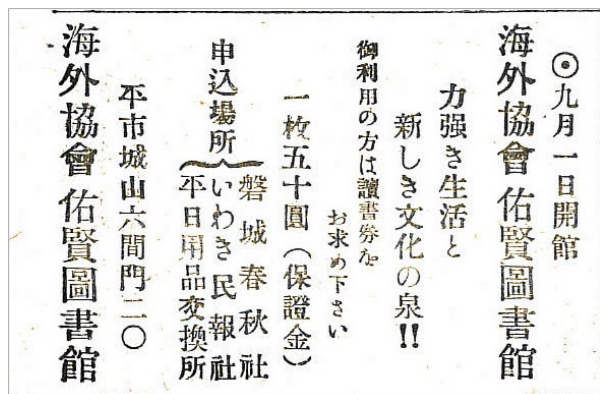 ⦿九月一日開館
海外協會佑賢圖書館
力强き生活と
新しき文化の泉!!
御利用の方は讀書券を
お求め下さい
一枚五十圓(保證金)
申込場所
磐城春秋社
いわき民報社
平日用品交換所
平市城山六間門二〇
海外協會佑賢圖書館